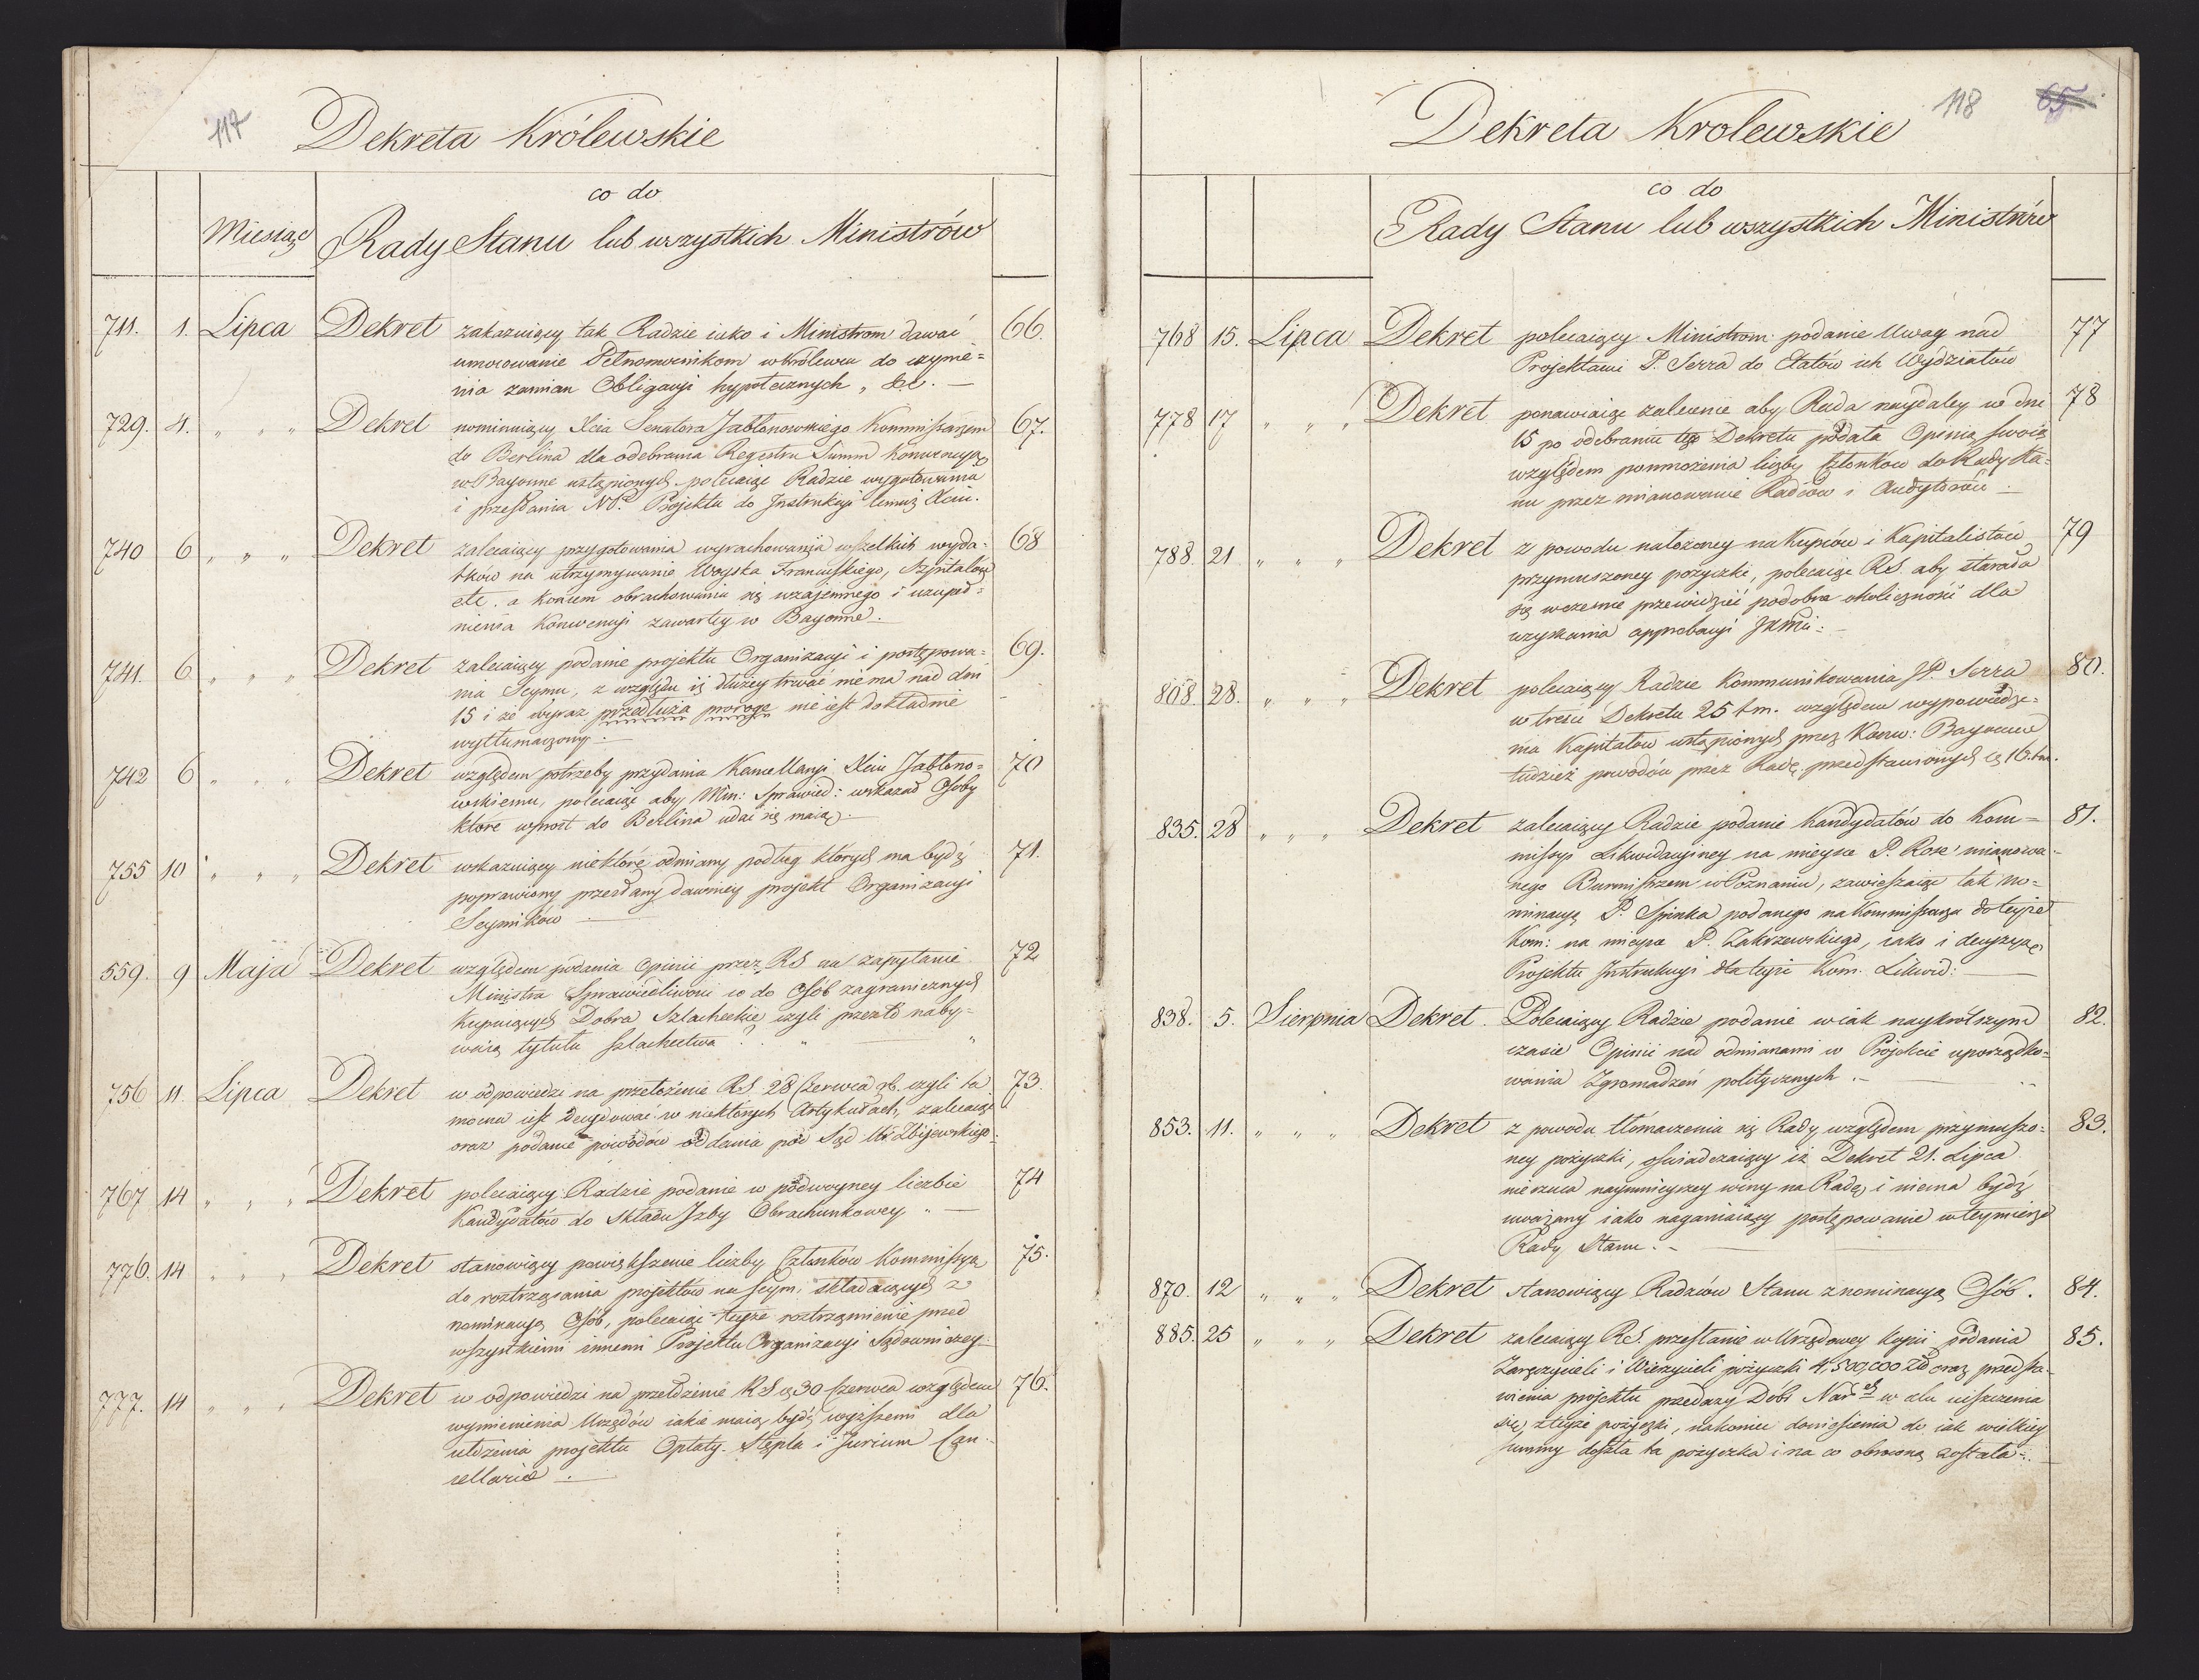 117
Dekreta Królewskie
Miesiąc
co do
Rady Stanu lub wszystkich Ministrów
711. 1. Lipca Dekret zakazuiący tak Radzie iako i Ministrom dawać 66.
umocowanie Pełnomocnikom w Królewcu do czynie=
nia zamian Obligacyi hypotecznych, &c. —
729. 4. " " " Dekret nominuiący Xcia Senatora Jabłonowskiego Kommissarzem 67.
do Berlina dla odebrania Regestru Summ Konwencyą
w Bayonne ustąpionych polecaiąc Radzie wygotowania
i przesłania NP. Projektu do Instrukcyi temuż Xciu.
740 6 " " " Dekret zalecaiący przygotowania wyrachowania wszelkich wyda= 68
tków na utrzymywanie Woyska Francuskiego, Szpitalow
etc. a końcem obrachowania się wzajemnego i uzupeł=
nienia Konwencyi zawartey w Bayonne.
741. 6 " " " Dekret zalecaiący podanie projektu Organizacyi i postępowa= 69.
nia Seymu, z względu iż dłużey trwać nie ma nad dni
15 i że wyraz przedłuża proroge nie iest dokładnie
wytłumaczony.
742 6 " " " Dekret względem potrzeby przydania Kancellaryi Xciu Jabłono= 70
wskiemu, polecaiąc aby Min: Sprawied: wskazał Osoby
które wprost do Berlina udać się maią.
755 10 " " " Dekret wskazuiący niektóre odmiany podług których ma bydź 71.
poprawiony przesłany dawniey projekt Organizacyi
Seymików
559. 9 Maja Dekret względem podania Opinii przez RS na zapytanie 72
Ministra Sprawiedliwości co do Osób zagranicznych
kupuiących Dobra Szlacheckie, czyli przezto naby=
waią tytułu szlachectwa
756 11. Lipca Dekret w odpowiedzi na przełożenie RS. 28 Czerwca rb. czyli ta 73.
mocna iest decydować w niektórych Artykułach, zalecaiąc
oraz podanie powodów oddania pod Sąd Ur Zbijewskiego.
767 14 " " " Dekret polecaiący Radzie podanie w podwoyney liczbie 74
Kandydatów do składu Izby Obrachunkowey " —
776. 14 " " " Dekret stanowiący powiększenie liczby Członków Kommissyą 75.
do roztrząsania projektów na seym, składaiących z
nominacyą Osób, polecaiąc teyże roztrząśnienie przed
wszystkiemi innemi Projektu Organizacyi Sądowniczey.
777. 14 " " " Dekret w odpowiedzi na przełożenie RS z 30 Czerwca względem 76.
wymienienia Urzędów iakie maią bydź wyższemi dla
ułożenia projektu Opłaty Stępla i Jurium Can=
cellariæ.
118 65
Dekreta Krolewskie
co do
Rady Stanu lub wszystkich Ministrów
768 15. Lipca Dekret polecaiący Ministrom podanie Uwag nad 77
Projektami P. Serra do Etatów ich Wydziałów
778 17 " " " Dekret ponawiaiąc zalecenie aby Rada naydaley w dni 78
15 po odebraniu tego Dekretu podała Opinią swoią
względem pomnożenia liczby Członkow do Rady Sta=
nu przez mianowanie Radców i Audytorów
788. 21 " " " Dekret z powodu nałożoney na Kupców i Kapitalistów 79
przymuszoney pożyczki, polecaiąc RS. aby starała
się wcześnie przewidzieć podobne okoliczności dla
uzyskania approbacyi JKMci.
808. 28. " " " Dekret polecaiący Radzie Kommunikowania JP. Serra 80.
w treści Dekretu 25 t.m. względem wypowiedze=
nia Kapitałów ustąpionych przez Konw: Bayonne
tudzież powodów przez Radę przedstawionych z 16. t.m.
835. 28 " " " Dekret zalecaiący Radzie podanie kandydatów do Kom= 81.
missyi Likwidacyiney na mieysce P. Rose mianowa=
nego Burmistrzem w Poznaniu, zawieszaiąc tak no=
minacyą P. Spinka podanego na Kommissarza do teyże
Kom: na mieysce P. Zakrzewskiego, iako i decyzyę
Projektu Instrukcyi dla teyże Kom. Likwid:
838. 5. Sierpnia Dekret. Polecaiący Radzie podanie w iak naykrótszym 82.
czasie Opinii nad odmianami w Projekcie uporządko=
wania Zgromadzeń politycznych.
853. 11. " " " Dekret z powodu tłómaczenia się Rady względem przymuszo= 83.
ney pożyczki, oświadczaiący iż Dekret 21. Lipca
nie rzuca naymnieyszey winy na Radę i niema bydź
uważany iako naganiaiący postępowanie w teymierze
Rady Stanu.
870. 12 " " " Dekret stanowiący Radzców Stanu z nominacyą Osób. 84.
885. 25 " " " Dekret zalecaiący RS. przesłanie w Urzędowey kopii podania 85.
Zaręczycieli i Wierzycieli pożyczki 4,500,000 Zł oraz przedsta=
wienia projektu przedaży Dobr Narch w celu uiszczenia
się z teyże pożyczki, nakoniec doniesienia do iak wielkiey
summy doszła ta pożyczka i na co obrocona została.